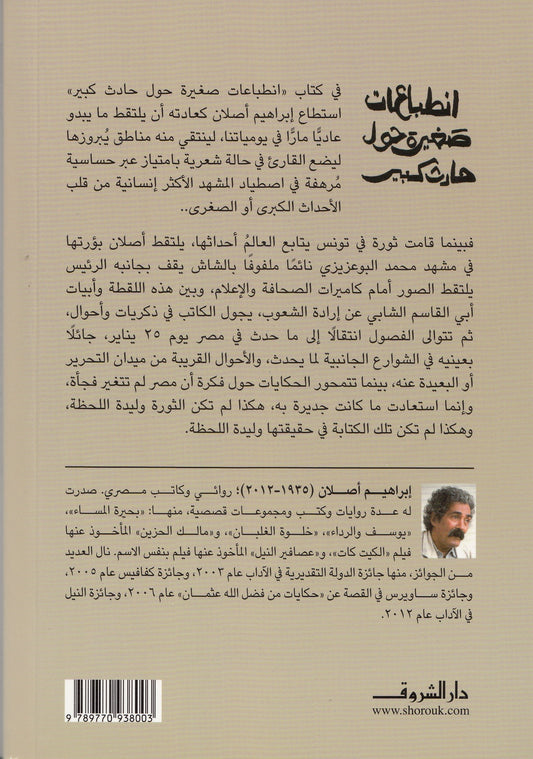 انطباعات
صغيرة حول
حادث كبير
في كتاب «انطباعات صغيرة حول حادث كبير»
استطاع إبراهيم أصلان كعادته أن يلتقط ما يبدو
عاديًّا مارًّا في يومياتنا، لينتقي منه مناطق يُبروزها
ليضع القارئ في حالة شعرية بامتياز عبر حساسية
مُرهفة في اصطياد المشهد الأكثر إنسانية من قلب
الأحداث الكبرى أو الصغرى..
فبينما قامت ثورة في تونس يتابع العالمُ أحداثها، يلتقط أصلان بؤرتها
في مشهد محمد البوعزيزي نائمًا ملفوفًا بالشاش يقف بجانبه الرئيس
يلتقط الصور أمام كاميرات الصحافة والإعلام، وبين هذه اللقطة وأبيات
أبي القاسم الشابي عن إرادة الشعوب، يجول الكاتب في ذكريات وأحوال،
ثم تتوالى الفصول انتقالًا إلى ما حدث في مصر يوم ٢٥ يناير، جائلًا
بعينيه في الشوارع الجانبية لما يحدث، والأحوال القريبة من ميدان التحرير
أو البعيدة عنه، بينما تتمحور الحكايات حول فكرة أن مصر لم تتغير فجأة،
وإنما استعادت ما كانت جديرة به، هكذا لم تكن الثورة وليدة اللحظة،
وهكذا لم تكن تلك الكتابة في حقيقتها وليدة اللحظة.
إبراهيم أصلان (١٩٣٥-٢٠١٢)؛ روائي وكاتب مصري. صدرت
له عدة روايات وكتب ومجموعات قصصية، منها: «بحيرة المساء»،
«يوسف والرداء»، «خلوة الغلبان»، و«مالك الحزين» المأخوذ عنها
فيلم «الكيت كات»، و«عصافير النيل» المأخوذ عنها فيلم بنفس الاسم. نال العديد
من الجوائز، منها جائزة الدولة التقديرية في الآداب عام ٢٠٠٣، وجائزة كفافيس عام ٢٠٠٥،
وجائزة ساويرس في القصة عن «حكايات من فضل الله عثمان» عام ٢٠٠٦، وجائزة النيل
في الآداب عام ٢٠١٢.
دار الشروق
www.shorouk.com
9 789770 938003